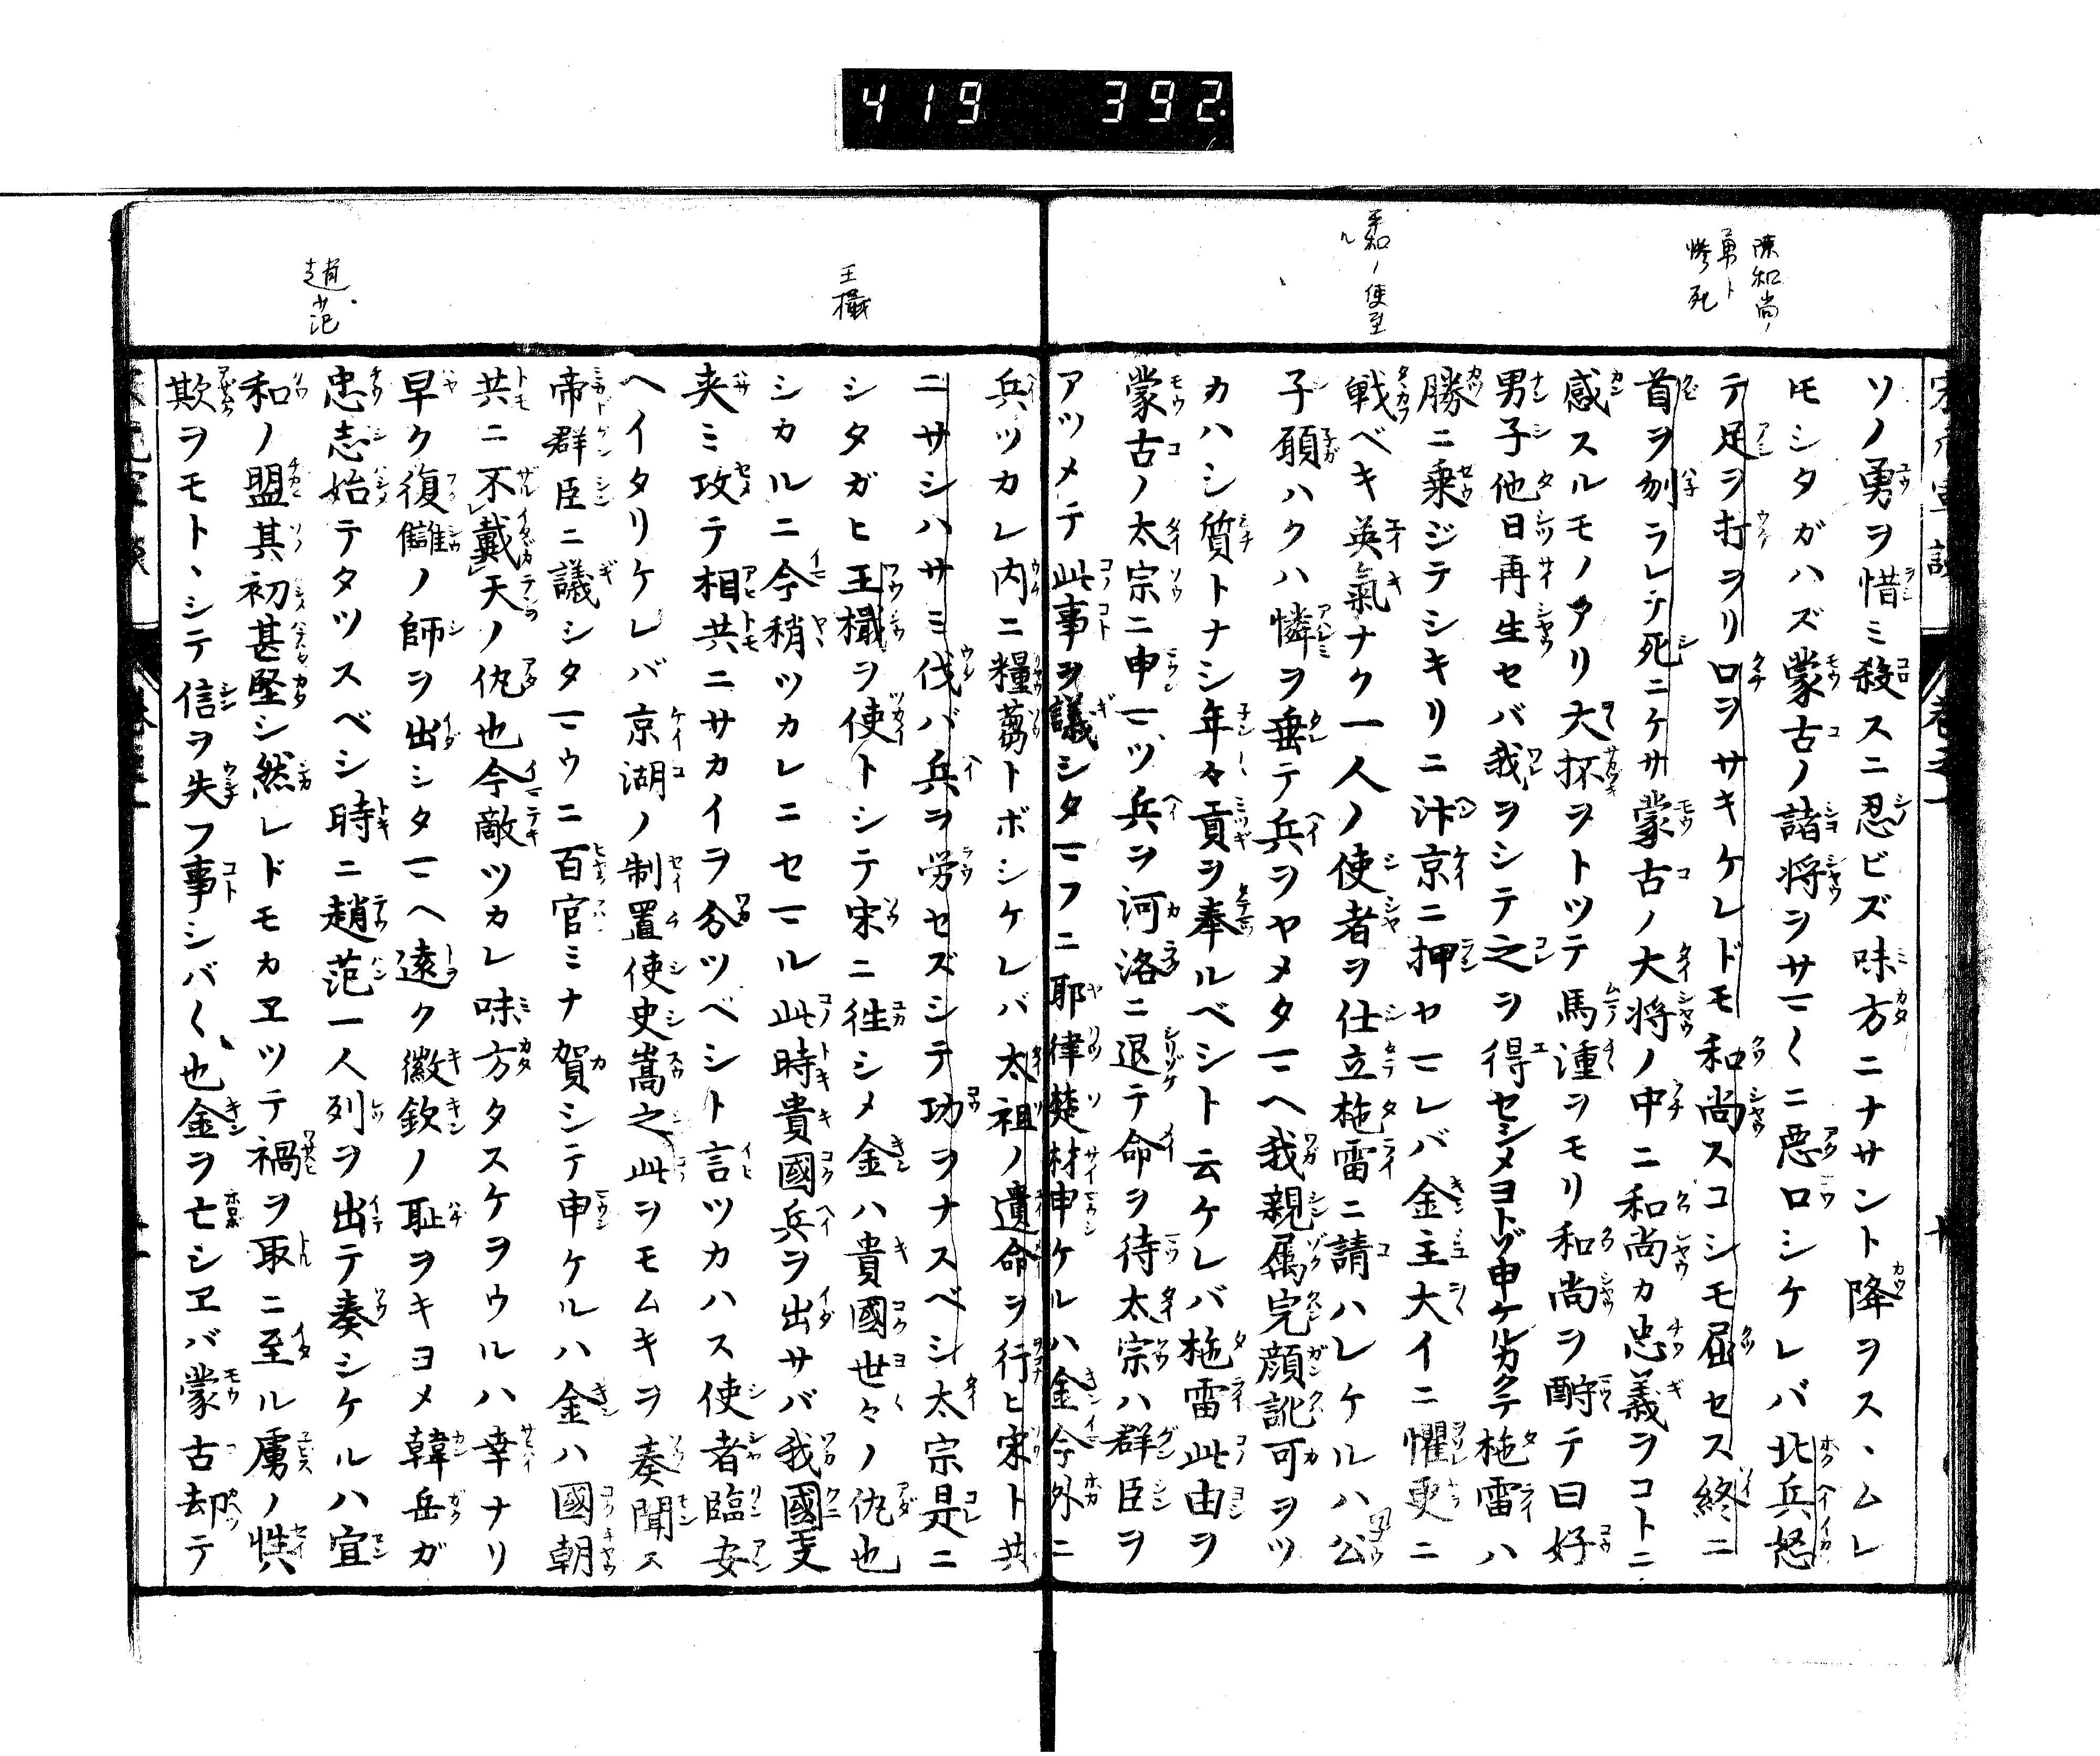 419 392.
陳和尚ノ
勇ト
惨死
平和ノ使至
ル
王檝
趙范
ソノ勇ヲ惜ミ殺スニ忍ビズ味方ニナサント降ヲスヽムレ
𪜈シタガハズ蒙古ノ諸将ヲサマ〱ニ惡口シケレバ北兵怒
テ足ヲ打ヲリ口ヲサキケレドモ和尚スコシモ屈セス終ニ
首ヲ刎ラレテ死ニケサ蒙古ノ大将ノ中ニ和尚カ忠義ヲコトニ
感スルモノアリ大杯ヲトツテ馬湩ヲモリ和尚ヲ酹テ曰好
男子他日再生セバ我ヲシテ之ヲ得セシメヨトゾ申ケルカクテ拖雷ハ
勝ニ乗ジテシキリニ汴京ニ押ヤマレバ金主大イニ懼更ニ
戰ベキ英氣ナク一人ノ使者ヲ仕立拖雷ニ請ハレケルハ公
子願ハクハ憐ヲ垂テ兵ヲヤメタマヘ我親属完顔訛可ヲツ
カハシ質トナシ年々貢ヲ奉ルベシト云ケレバ拖雷此由ヲ
蒙古ノ太宗ニ申マツ兵ヲ河洛ニ退テ命ヲ待太宗ハ群臣ヲ
アツメテ此事ヲ議シタマフニ耶律楚材申ケルハ金今外ニ
兵ツカレ内ニ糧蒭トボシケレバ太祖ノ遺命ヲ行ヒ宋ト共
ニサシハサミ伐バ兵ヲ労セズシテ功ヲナスベシ太宗是ニ
シタガヒ王檝ヲ使トシテ宋ニ徃シメ金ハ貴國世々ノ仇也
シカルニ今稍ツカレニセマル此時貴國兵ヲ出サバ我國更
夹ミ攻テ相共ニサカイヲ分ツベシト言ツカハス使者臨安
ヘイタリケレバ京湖ノ制置使史嵩之此ヲモムキヲ奏聞ス
帝群臣ニ議シタマウニ百官ミナ賀シテ申ケルハ金ハ國朝
共ニ不戴天ノ仇也今敵ツカレ味方タスケヲウルハ幸ナリ
早ク復讎ノ師ヲ出シタマヘ遠ク徽欽ノ耻ヲキヨメ韓岳ガ
忠志始テタツスベシ時ニ趙范一人列ヲ出テ奏シケルハ宣
和ノ盟其初甚堅シ然レドモカヱツテ禍ヲ取ニ至ル虜ノ性
欺ヲモトヽシテ信ヲ失フ事シバ〱也金ヲ亡シヱバ蒙古却テ